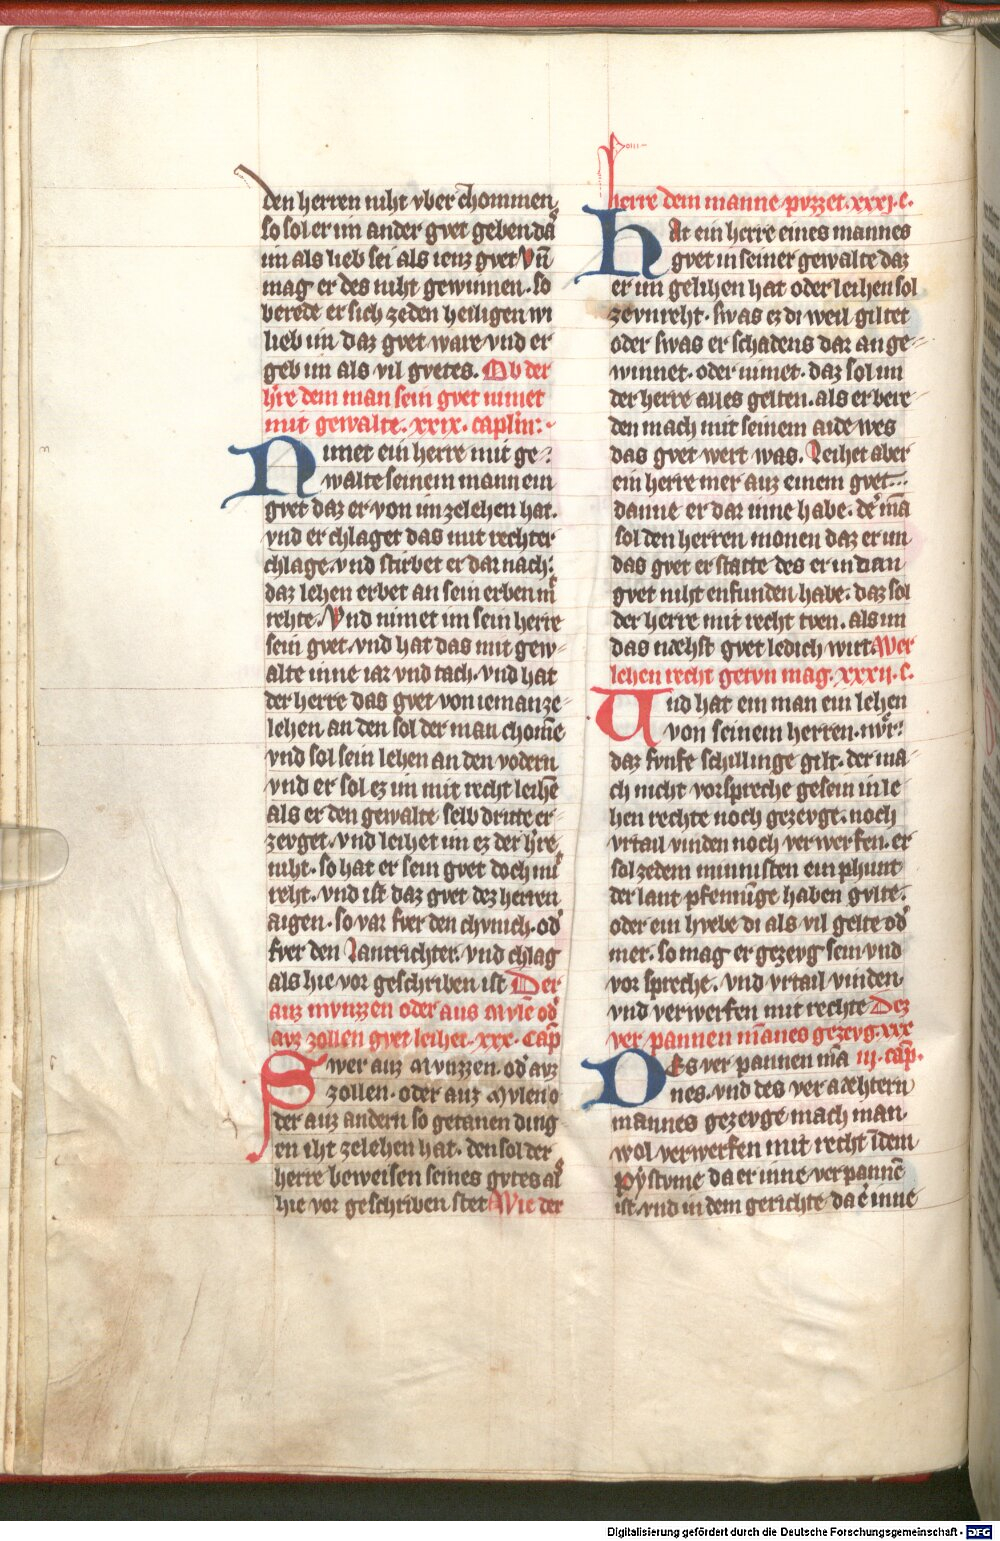 den herren niht vber chommen.
so sol er im ander gvet geben da
im als lieb sei als ienz gvet Vn̄
mag er des niht gewinnen. so
berede er sich zeden heiligen wi
lieb im daz gvet ware vnd er
geb im als vil gvetes. Ob der
h're dem man sein gvet nimet
mit gewalte. xxix. capl'm:
Nimet ein herre mit ge
walte seinem mann ein
gvet daz er von im zelehen hat.
vnd er chlaget das mit rechter
chlage. vnd stirbet er dar nach.
daz lehen erbet an sein erben mi'
rehte. Vnd nimet im sein herre
sein gvet. vnd hat das mit gew-
alte inne iar vnd tach. vnd hat
der herre das gvet von iemanze-
lehen an den sol der man chom̄e
vnd sol sein lehen an den vodern
vnd er sol ez im mit recht leihē
als er den gewalte selb dritte er-
zevget. vnd leihet im ez der h're
niht. so hat er sein gvet doch mi'
reht. vnd ist daz gvet dez herren
aigen. so var fver den chvnich. od'
fver den Lantrichter. vnd chlag
als hie vor geschriben ist Der
auz mvnzzen oder aus mvle od'
avz zollen gvet leihet. xxx. Cap̄
Swer auz Mvnzzen. od' avz
zollen. oder auz Mvlen o
der auz andern so getanen ding
en iht zelehen hat. den sol der
herre beweisen seines gvtes als
hie vor geschriben stet Wie der
herre dem manne pvzzet. xxxj. c.
Hat ein herre eines mannes
gvet in seiner gewalte daz
er im gelihen hat oder leihen sol
zevnreht. swas ez di weil giltet
oder swas er schadens dar an ge-
winnet. oder nimet. daz sol im
der herre alles gelten. als er bere
den mach mit seinem aide wes
das gvet wert was. Leihet aber
ein herre mer auz einem gvet
danne er dar inne habe. de' mā
sol den herren monen daz er im
das gvet erstatte des er in dem
gvet niht enfunden habe. daz sol
der herre mit recht tven. als im
das næhst gvet ledich wirt. Wer
lehen recht getvn mag. xxxii. c.
Und hat ein man ein lehen
von seinem herren. nvr
daz fvnfe schillinge gilt. der ma
ch nicht vorspreche gesein in le
hen rechte noch gezevge. noch
vrtail vinden noch verwerfen. er
sol zedem minnisten ein phunt
der lant pfenni̅ge haben gvlte.
oder ein hvebe di als vil gelte od'
mer. so mag er gezevg sein vnd
vor spreche. vnd vrtail vinden
vnd verwerfen mit rechte Dez
ver pannen mānes gezevg. xxx
iij. cap̄.
Des ver pannen mā
nes. vnd des ver æchtern
mannes gezevge mach man
wol verwerfen mit recht īdem
pystvme da er inne verpannē
ist. vnd in dem gerichte da e' inne
Digitalisierung gefördert durch die Deutsche Forschungsgemeinschaft - DFG